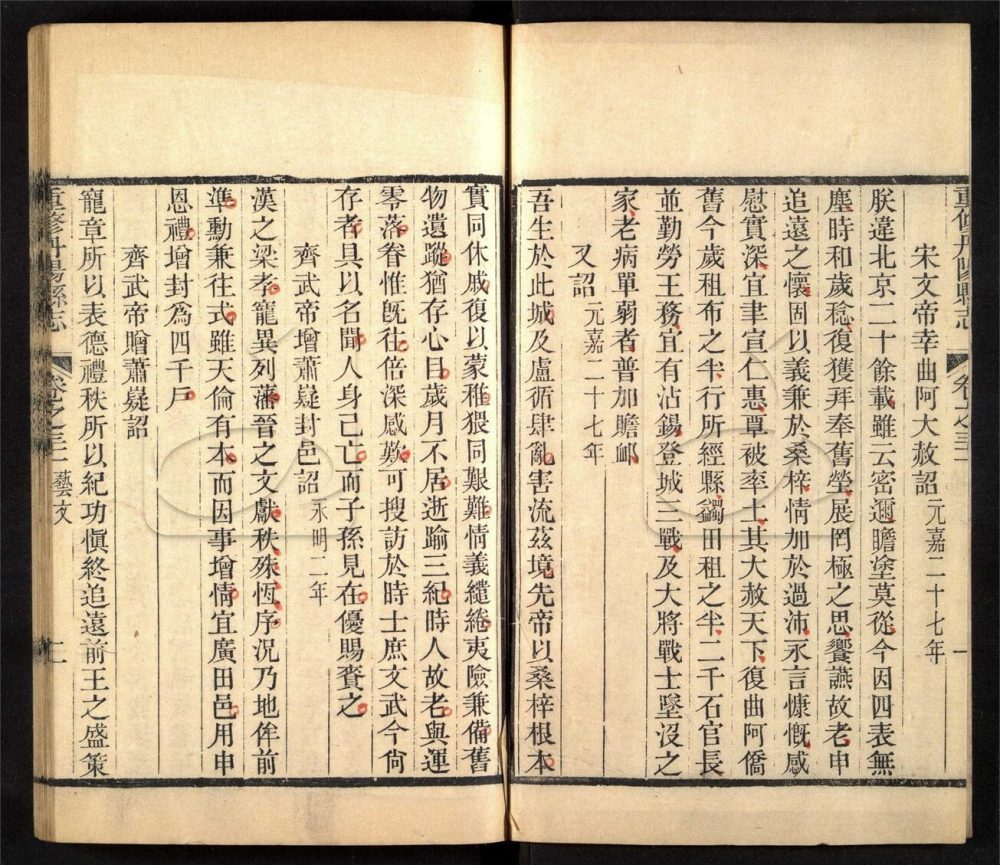 重修丹陽縣志
卷之三
一
宋文帝幸曲阿大赦詔元嘉二十七年
朕違北京二十餘載雖云密邇瞻塗莫從今因四表無
塵時和歲稔復獲拜奉舊塋展罔極之思饗讌故老申
追遠之懷固以義兼於桑梓情加於過沛永言慷慨感
慰實深宜聿宣仁惠覃被率土其大赦天下復曲阿僑
舊今歲租布之半行所經縣蠲田租之半二千石官長
並勤勞王務宜有沾錫登城三戰及大將戰士墜沒之
家老病單弱者普加贍䘏
又詔元嘉二十七年
吾生於此城及盧循肆亂害流茲境先帝以桑梓根本
實同休戚復以蒙稚猥同艱難情義繾綣夷險兼備舊
物遺蹤猶存心目歲月不居逝踰三紀時人故老與運
零落眷惟旣往倍深感歎可搜訪於時士庶文武今尚
存者具以名聞人身已亡而子孫見在優賜賚之
齊武帝增蕭嶷封邑詔永明二年
漢之梁孝寵異列藩晉之文獻秩殊恆序況乃地侔前
準勳兼往式雖天倫有本而因事增情宜廣田邑用申
恩禮增封爲四千戶
齊武帝贈蕭嶷詔
寵章所以表德禮秩所以紀功愼終追遠前王之盛策
重修丹陽縣志
卷之三
藝文